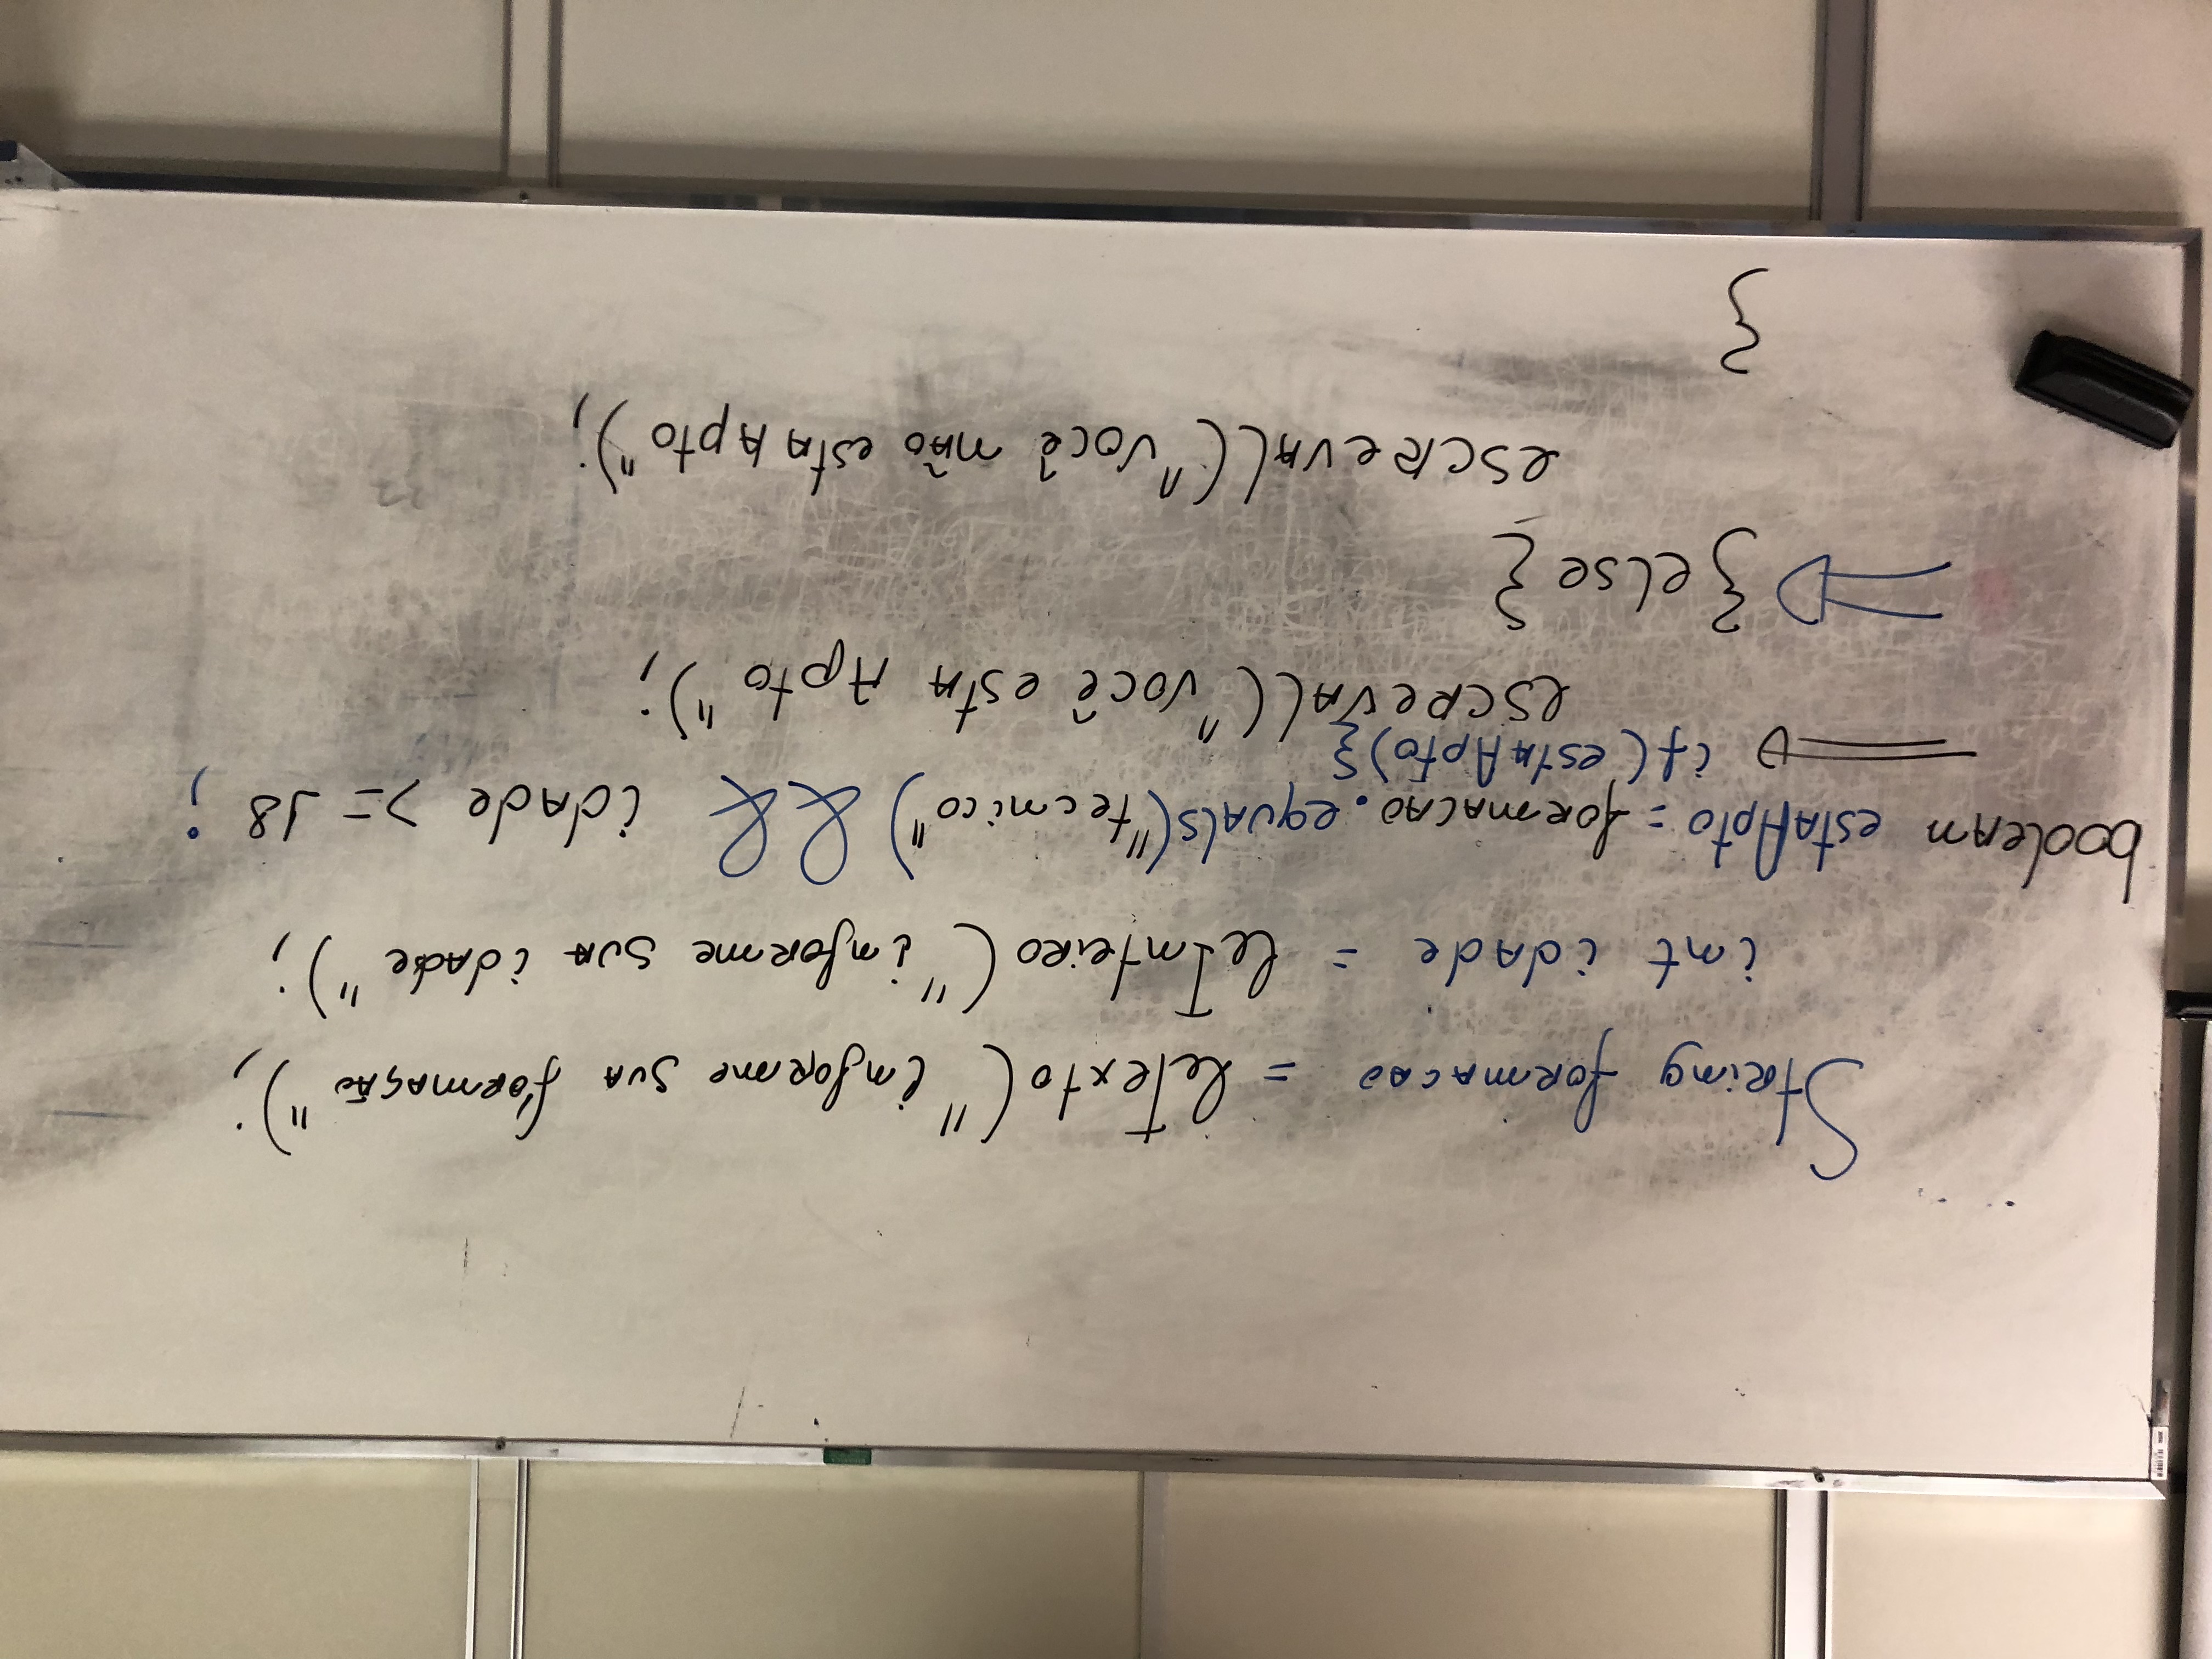 String formacao = leTexto("informe sua formação");
int idade = leInteiro("informe sua idade");
boolean estaApto = formacao.equals("tecnico") && idade >= 18 ;
if(estaApto){
escreval("você esta Apto");
}else{
escreval("você não esta Apto");
}